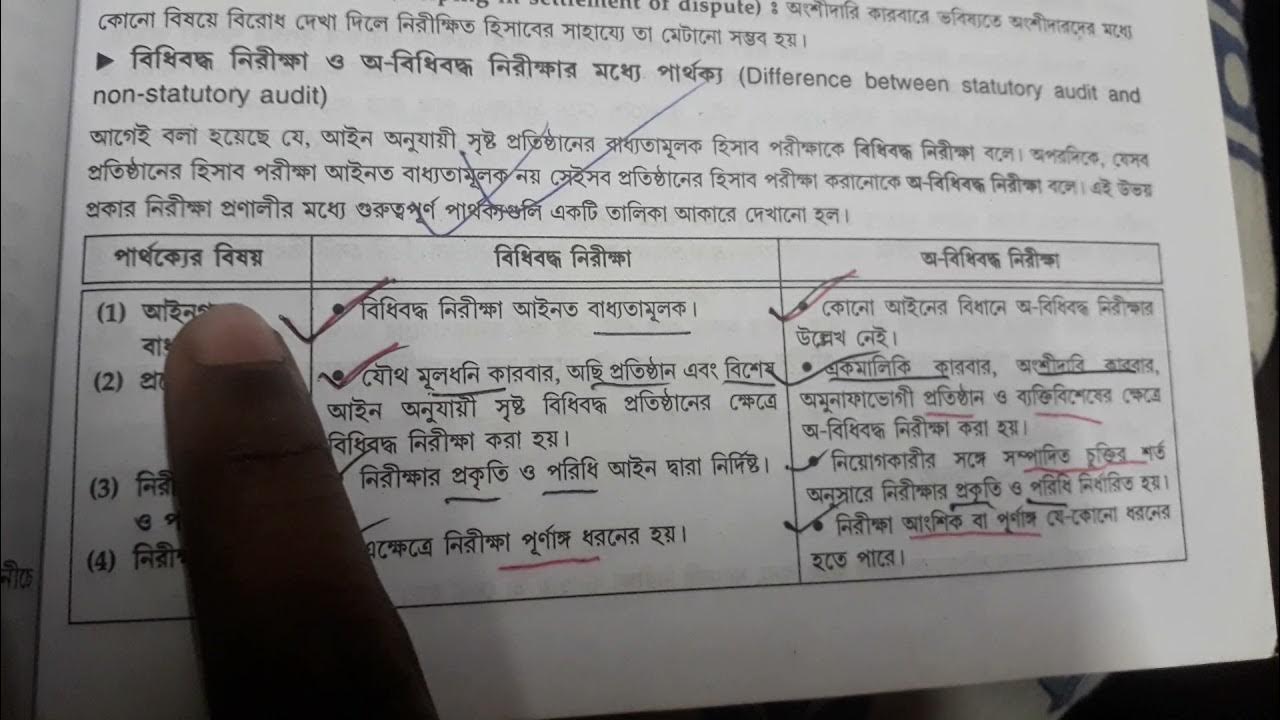 in settlement of dispute) : অংশীদারি কারবারে ভবিষ্যতে অংশীদারদের মধ্যে
কোনো বিষয়ে বিরোধ দেখা দিলে নিরীক্ষিত হিসাবের সাহায্যে তা মেটানো সম্ভব হয়।
▶ বিধিবদ্ধ নিরীক্ষা ও অ-বিধিবদ্ধ নিরীক্ষার মধ্যে পার্থক্য (Difference between statutory audit and
non-statutory audit)
আগেই বলা হয়েছে যে, আইন অনুযায়ী সৃষ্ট প্রতিষ্ঠানের বাধ্যতামূলক হিসাব পরীক্ষাকে বিধিবদ্ধ নিরীক্ষা বলে। অপরদিকে, যেসব
প্রতিষ্ঠানের হিসাব পরীক্ষা আইনত বাধ্যতামূলক নয় সেইসব প্রতিষ্ঠানের হিসাব পরীক্ষা করানোকে অ-বিধিবদ্ধ নিরীক্ষা বলে। এই উভয়
প্রকার নিরীক্ষা প্রণালীর মধ্যে গুরুত্বপূর্ণ পার্থক্যগুলি একটি তালিকা আকারে দেখানো হল।
পার্থক্যের বিষয় বিধিবদ্ধ নিরীক্ষা অ-বিধিবদ্ধ নিরীক্ষা
(1) • বিধিবদ্ধ নিরীক্ষা আইনত বাধ্যতামূলক। • কোনো আইনের বিধানে অ-বিধিবদ্ধ নিরীক্ষার
উল্লেখ নেই।
(2) • যৌথ মূলধনি কারবার, অছি প্রতিষ্ঠান এবং বিশেষ • একমালিকি কারবার, অংশীদারি কারবার,
আইন অনুযায়ী সৃষ্ট বিধিবদ্ধ প্রতিষ্ঠানের ক্ষেত্রে অমুনাফাভোগী প্রতিষ্ঠান ও ব্যক্তিবিশেষের ক্ষেত্রে
বিধিবদ্ধ নিরীক্ষা করা হয়। অ-বিধিবদ্ধ নিরীক্ষা করা হয়।
(3) নিরীক্ষার প্রকৃতি ও পরিধি আইন দ্বারা নির্দিষ্ট। • নিয়োগকারীর সঙ্গে সম্পাদিত চুক্তির শর্ত
ও অনুসারে নিরীক্ষার প্রকৃতি ও পরিধি নির্ধারিত হয়।
(4) এক্ষেত্রে নিরীক্ষা পূর্ণাঙ্গ ধরনের হয়। • নিরীক্ষা আংশিক বা পূর্ণাঙ্গ যে-কোনো ধরনের
হতে পারে।